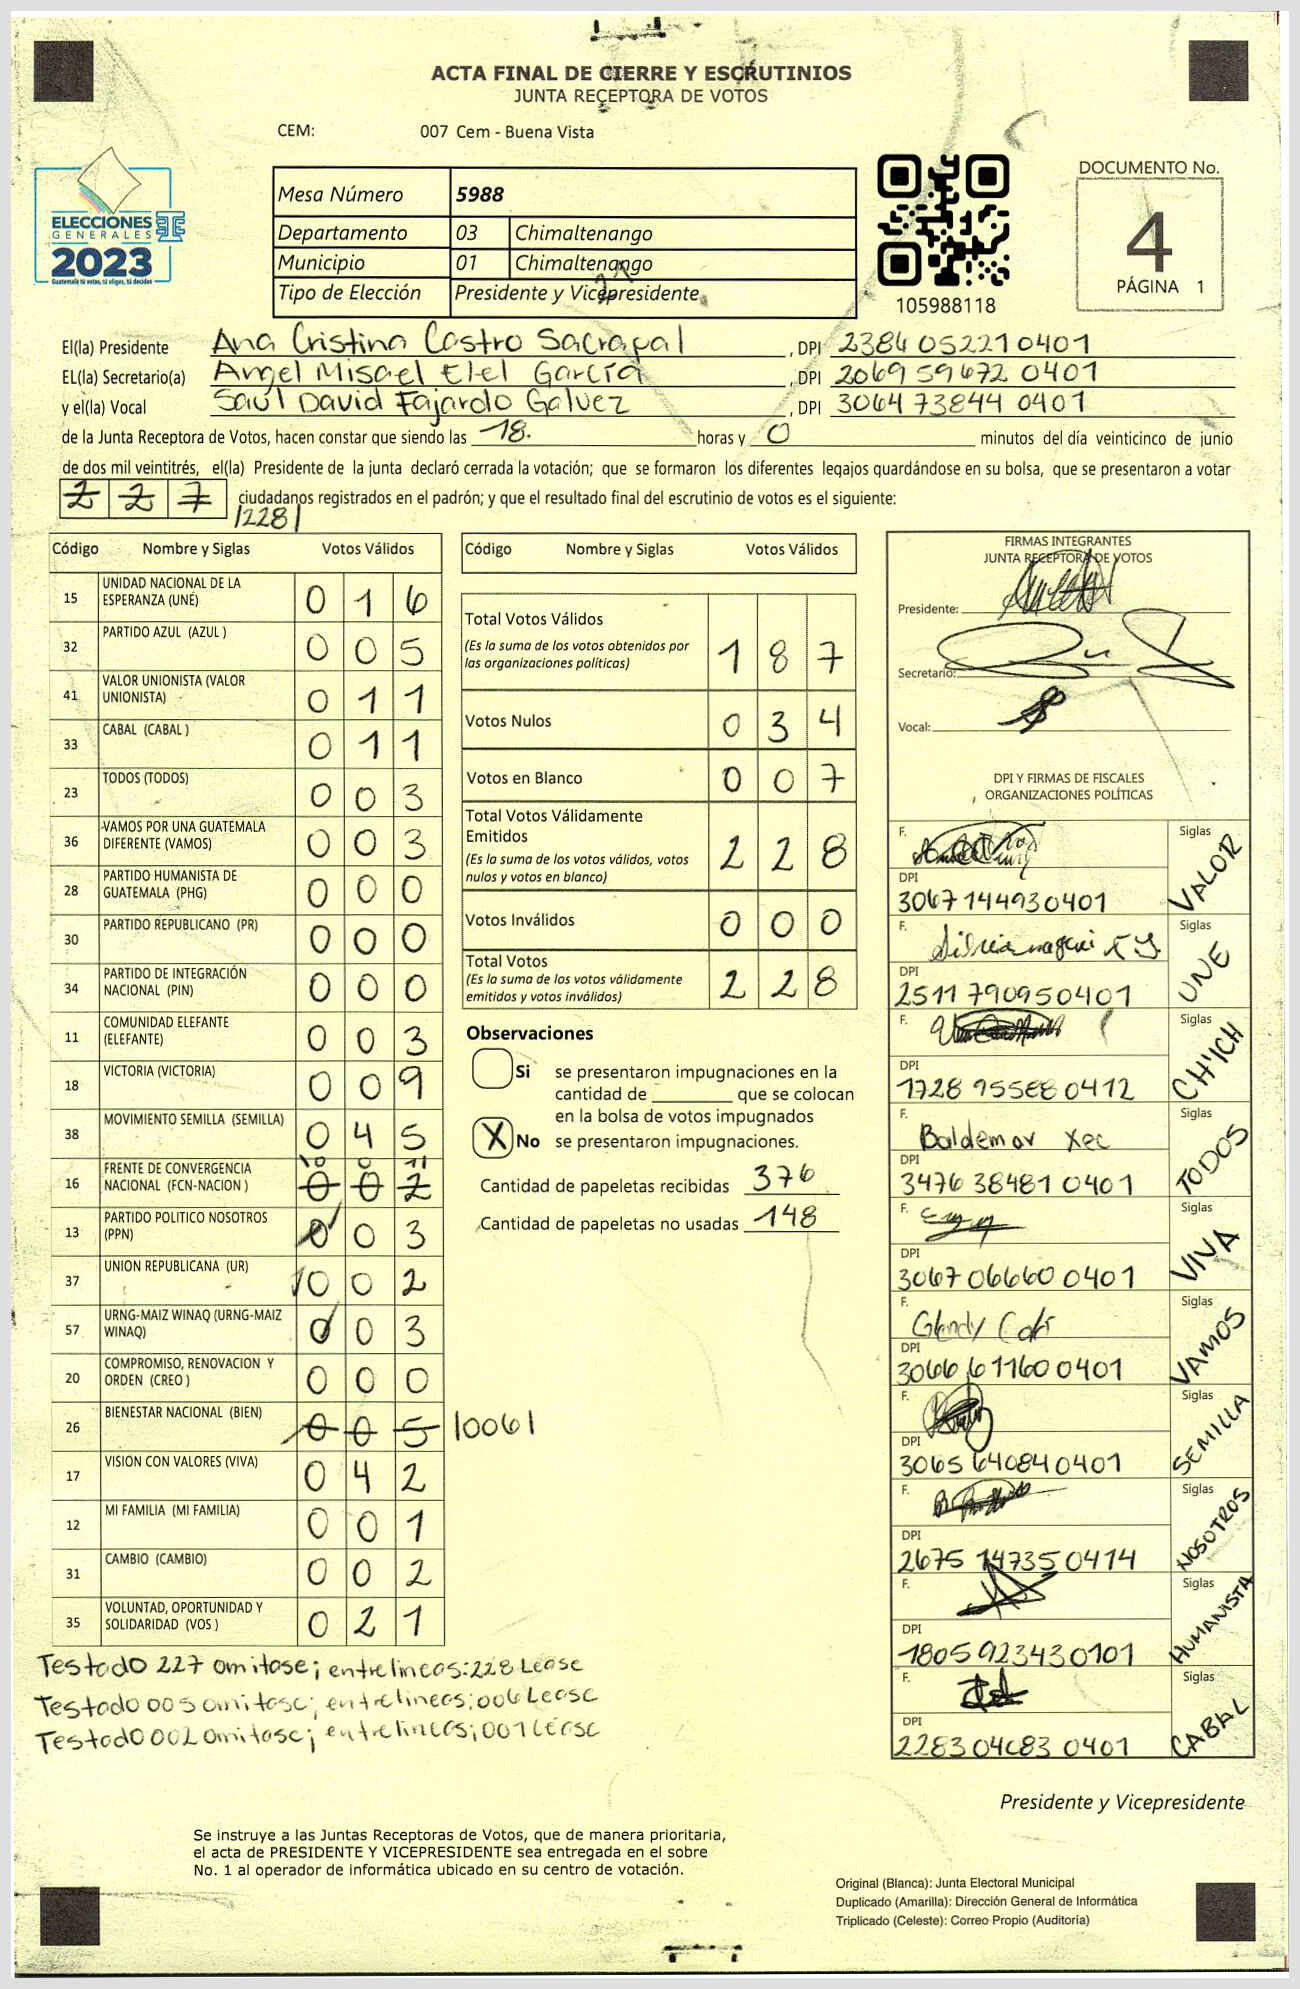 ACTA FINAL DE CIERRE Y ESCRUTINIOS
JUNTA RECEPTORA DE VOTOS
CEM: 007 Cem - Buena Vista
ELECCIONES
GENERALES
2023
Guatemala tú votas, tú eliges, tú decides
Mesa Número 5988
Departamento 03 Chimaltenango
Municipio 01 Chimaltenango
Tipo de Elección Presidente y Vicepresidente
105988118
DOCUMENTO No.
4
PÁGINA 1
El(la) Presidente Ana Cristina Castro Sacrapal , DPI 2384 05221 0401
EL(la) Secretario(a) Angel Misael Elel García , DPI 2069 59672 0401
y el(la) Vocal Saúl David Fajardo Galvez , DPI 3064 73844 0401
de la Junta Receptora de Votos, hacen constar que siendo las 18. horas y 0 minutos del día veinticinco de junio
de dos mil veintitrés, el(la) Presidente de la junta declaró cerrada la votación; que se formaron los diferentes legajos quardándose en su bolsa, que se presentaron a votar
2 2 7 ciudadanos registrados en el padrón; y que el resultado final del escrutinio de votos es el siguiente:
|228|
Código Nombre y Siglas Votos Válidos
15 UNIDAD NACIONAL DE LA ESPERANZA (UNE) 0 1 6
32 PARTIDO AZUL (AZUL ) 0 0 5
41 VALOR UNIONISTA (VALOR UNIONISTA) 0 1 1
33 CABAL (CABAL ) 0 1 1
23 TODOS (TODOS) 0 0 3
36 VAMOS POR UNA GUATEMALA DIFERENTE (VAMOS) 0 0 3
28 PARTIDO HUMANISTA DE GUATEMALA (PHG) 0 0 0
30 PARTIDO REPUBLICANO (PR) 0 0 0
34 PARTIDO DE INTEGRACIÓN NACIONAL (PIN) 0 0 0
11 COMUNIDAD ELEFANTE (ELEFANTE) 0 0 3
18 VICTORIA (VICTORIA) 0 0 9
38 MOVIMIENTO SEMILLA (SEMILLA) 0 4 5
|0 0 1|
16 FRENTE DE CONVERGENCIA NACIONAL (FCN-NACION ) 0 0 2
13 PARTIDO POLITICO NOSOTROS (PPN) 0 0 3
37 UNION REPUBLICANA (UR) 0 0 2
57 URNG-MAIZ WINAQ (URNG-MAIZ WINAQ) 0 0 3
20 COMPROMISO, RENOVACION Y ORDEN (CREO ) 0 0 0
26 BIENESTAR NACIONAL (BIEN) 0 0 5 |006|
17 VISION CON VALORES (VIVA) 0 4 2
12 MI FAMILIA (MI FAMILIA) 0 0 1
31 CAMBIO (CAMBIO) 0 0 2
35 VOLUNTAD, OPORTUNIDAD Y SOLIDARIDAD (VOS ) 0 2 1
Testado 227 omitase; entrelineas: 228 Lease
Testado 005 omitase; entrelineas; 006 Lease
Testado 002 omitase; entrelineas; 001 Lease
Código Nombre y Siglas Votos Válidos
Total Votos Válidos 1 8 7
(Es la suma de los votos obtenidos por
las organizaciones políticas)
Votos Nulos 0 3 4
Votos en Blanco 0 0 7
Total Votos Válidamente
Emitidos 2 2 8
(Es la suma de los votos válidos, votos
nulos y votos en blanco)
Votos Inválidos 0 0 0
Total Votos 2 2 8
(Es la suma de los votos válidamente
emitidos y votos inválidos)
Observaciones
Si se presentaron impugnaciones en la
cantidad de ________ que se colocan
en la bolsa de votos impugnados
X No se presentaron impugnaciones.
Cantidad de papeletas recibidas 376
Cantidad de papeletas no usadas 148
FIRMAS INTEGRANTES
JUNTA RECEPTORA DE VOTOS
Presidente:
Secretario:
Vocal:
DPI Y FIRMAS DE FISCALES
ORGANIZACIONES POLÍTICAS
F. Siglas VALOR
DPI
3067 14493 0401
F. Siglas UNE
DPI
2511 79095 0401
F. Siglas CHICH
DPI
1728 95588 0412
F. Baldemar Xec Siglas TODOS
DPI
3476 38481 0401
F. Siglas VIVA
DPI
3067 06660 0401
F. Glendy Siglas VAMOS
DPI
3066 61160 0401
F. Siglas SEMILLA
DPI
3065 64084 0401
F. Siglas NOSOTROS
DPI
2675 14735 0414
F. Siglas HUMANISTA
DPI
1805 92343 0101
F. Siglas CABAL
DPI
2283 04083 0401
Presidente y Vicepresidente
Se instruye a las Juntas Receptoras de Votos, que de manera prioritaria,
el acta de PRESIDENTE Y VICEPRESIDENTE sea entregada en el sobre
No. 1 al operador de informática ubicado en su centro de votación.
Original (Blanca): Junta Electoral Municipal
Duplicado (Amarilla): Dirección General de Informática
Triplicado (Celeste): Correo Propio (Auditoría)